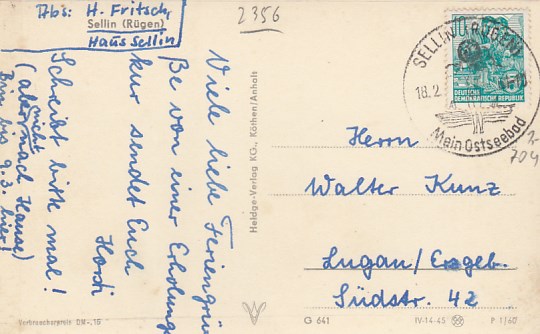 Abs: H. Fritsch,
Sellin (Rügen)
Haus Sellin
2356
Viele liebe Feriengrü
Be von einer Erholungs
kur sendet Euch
Hardi
Schreibt bitte mal!
(aber nicht nach Hause)
Bin bis 9.3. hier!
Heldge-Verlag KG., Köthen/Anhalt
SELLIN (RÜGEN)
18.2
Mein Ostseebad
DEUTSCHE
DEMOKRATISCHE REPUBLIK
1-
704
Herrn
Walter Kunz
Lugan/Erzgeb.
Südstr. 42
Verbraucherpreis DM -,15
G 641
IV-14-45
P 1/60